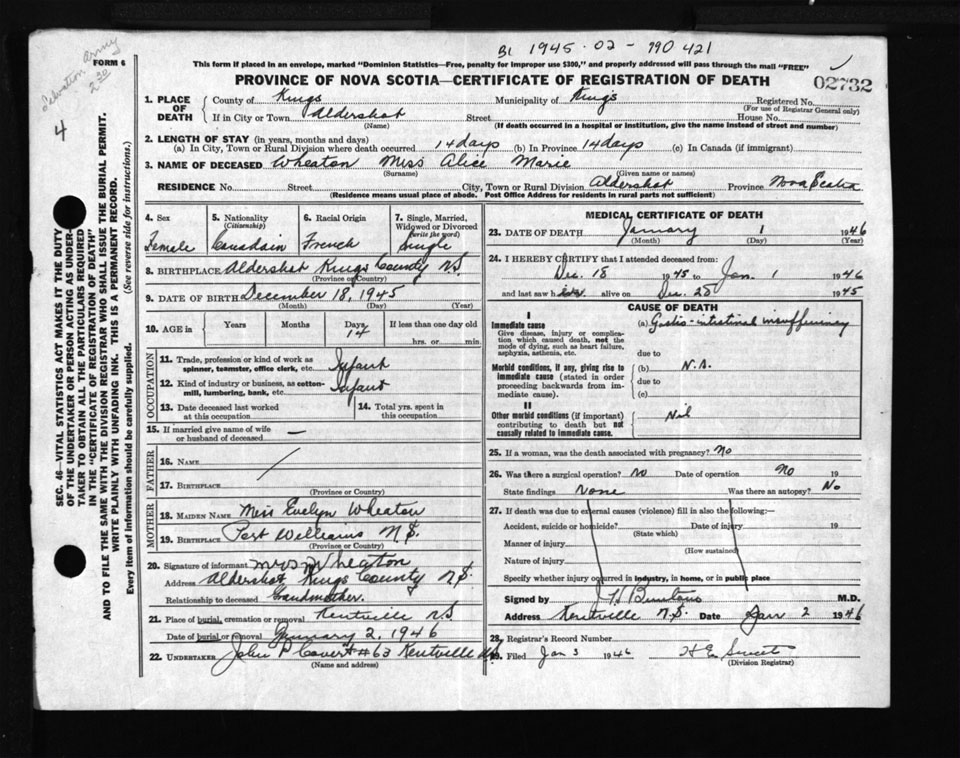 Salvation Army
4
Bl 1945-02-790421
FORM 6
This form if placed in an envelope, marked "Dominion Statistics—Free, penalty for improper use $300," and properly addressed will pass through the mail "FREE"
PROVINCE OF NOVA SCOTIA—CERTIFICATE OF REGISTRATION OF DEATH
02732
SEC. 46—VITAL STATISTICS ACT MAKES IT THE DUTY
OF THE UNDERTAKER OR PERSON ACTING AS UNDER-
TAKER TO OBTAIN ALL THE PARTICULARS REQUIRED
IN THE "CERTIFICATE OF REGISTRATION OF DEATH"
AND TO FILE THE SAME WITH THE DIVISION REGISTRAR WHO SHALL ISSUE THE BURIAL PERMIT.
WRITE PLAINLY WITH UNFADING INK. THIS IS A PERMANENT RECORD.
Every item of information should be carefully supplied. (See reverse side for instructions.)
1. PLACE OF DEATH County of Kings Municipality of Kings Registered No.
(For use of Registrar General only)
If in City or Town Aldershot Street House No.
(Name) (If death occurred in a hospital or institution, give the name instead of street and number)
2. LENGTH OF STAY (in years, months and days)
(a) In City, Town or Rural Division where death occurred 14 days (b) In Province 14 days (c) In Canada (if immigrant)
3. NAME OF DECEASED Wheaton Miss Alice Marie
(Surname) (Given name or names)
RESIDENCE No. Street City, Town or Rural Division Aldershot Province Nova Scotia
(Residence means usual place of abode. Post Office Address for residents in rural parts not sufficient)
4. Sex Female
5. Nationality (Citizenship) Canadain
6. Racial Origin French
7. Single, Married, Widowed or Divorced (write the word) Single
8. BIRTHPLACE Aldershot Kings County N.S.
(Province or Country)
9. DATE OF BIRTH December 18, 1945
(Month) (Day) (Year)
10. AGE in Years Months Days 14 If less than one day old
hrs. or min.
OCCUPATION
11. Trade, profession or kind of work as spinner, teamster, office clerk, etc. Infant
12. Kind of industry or business, as cotton-mill, lumbering, bank, etc. Infant
13. Date deceased last worked at this occupation
14. Total yrs. spent in this occupation
15. If married give name of wife or husband of deceased —
FATHER
16. NAME
17. BIRTHPLACE
(Province or Country)
MOTHER
18. MAIDEN NAME Miss Evelyn Wheaton
19. BIRTHPLACE Port Williams N.S.
(Province or Country)
20. Signature of informant Mrs Wheaton
Address Aldershot Kings County N.S.
Relationship to deceased Grandmother.
21. Place of burial, cremation or removal Kentville N.S.
Date of burial or removal January 2, 1946
22. UNDERTAKER John P Covert #63 Kentville N.S.
(Name and address)
MEDICAL CERTIFICATE OF DEATH
23. DATE OF DEATH January 1 1946
(Month) (Day) (Year)
24. I HEREBY CERTIFY that I attended deceased from:
Dec. 18 1945 to Jan. 1 1946
and last saw h alive on Dec. 28 1945
CAUSE OF DEATH
I
Immediate cause
Give disease, injury or complication which caused death, not the mode of dying, such as heart failure, asphyxia, asthenia, etc.
(a) Gastro-intestinal insufficiency
due to
Morbid conditions, if any, giving rise to immediate cause (stated in order proceeding backwards from immediate cause).
(b) N.S.
due to
(c)
II
Other morbid conditions (if important) contributing to death but not causally related to immediate cause.
Nil
25. If a woman, was the death associated with pregnancy? No
26. Was there a surgical operation? No Date of operation No 19
State findings None Was there an autopsy? No
27. If death was due to external causes (violence) fill in also the following:—
Accident, suicide or homicide? Date of injury 19
(State which)
Manner of injury
(How sustained)
Nature of injury
Specify whether injury occurred in industry, in home, or in public place
Signed by M.D.
Address Kentville N.S. Date Jan 2 1946
28. Registrar's Record Number
29. Filed Jan 3 1946
(Division Registrar)